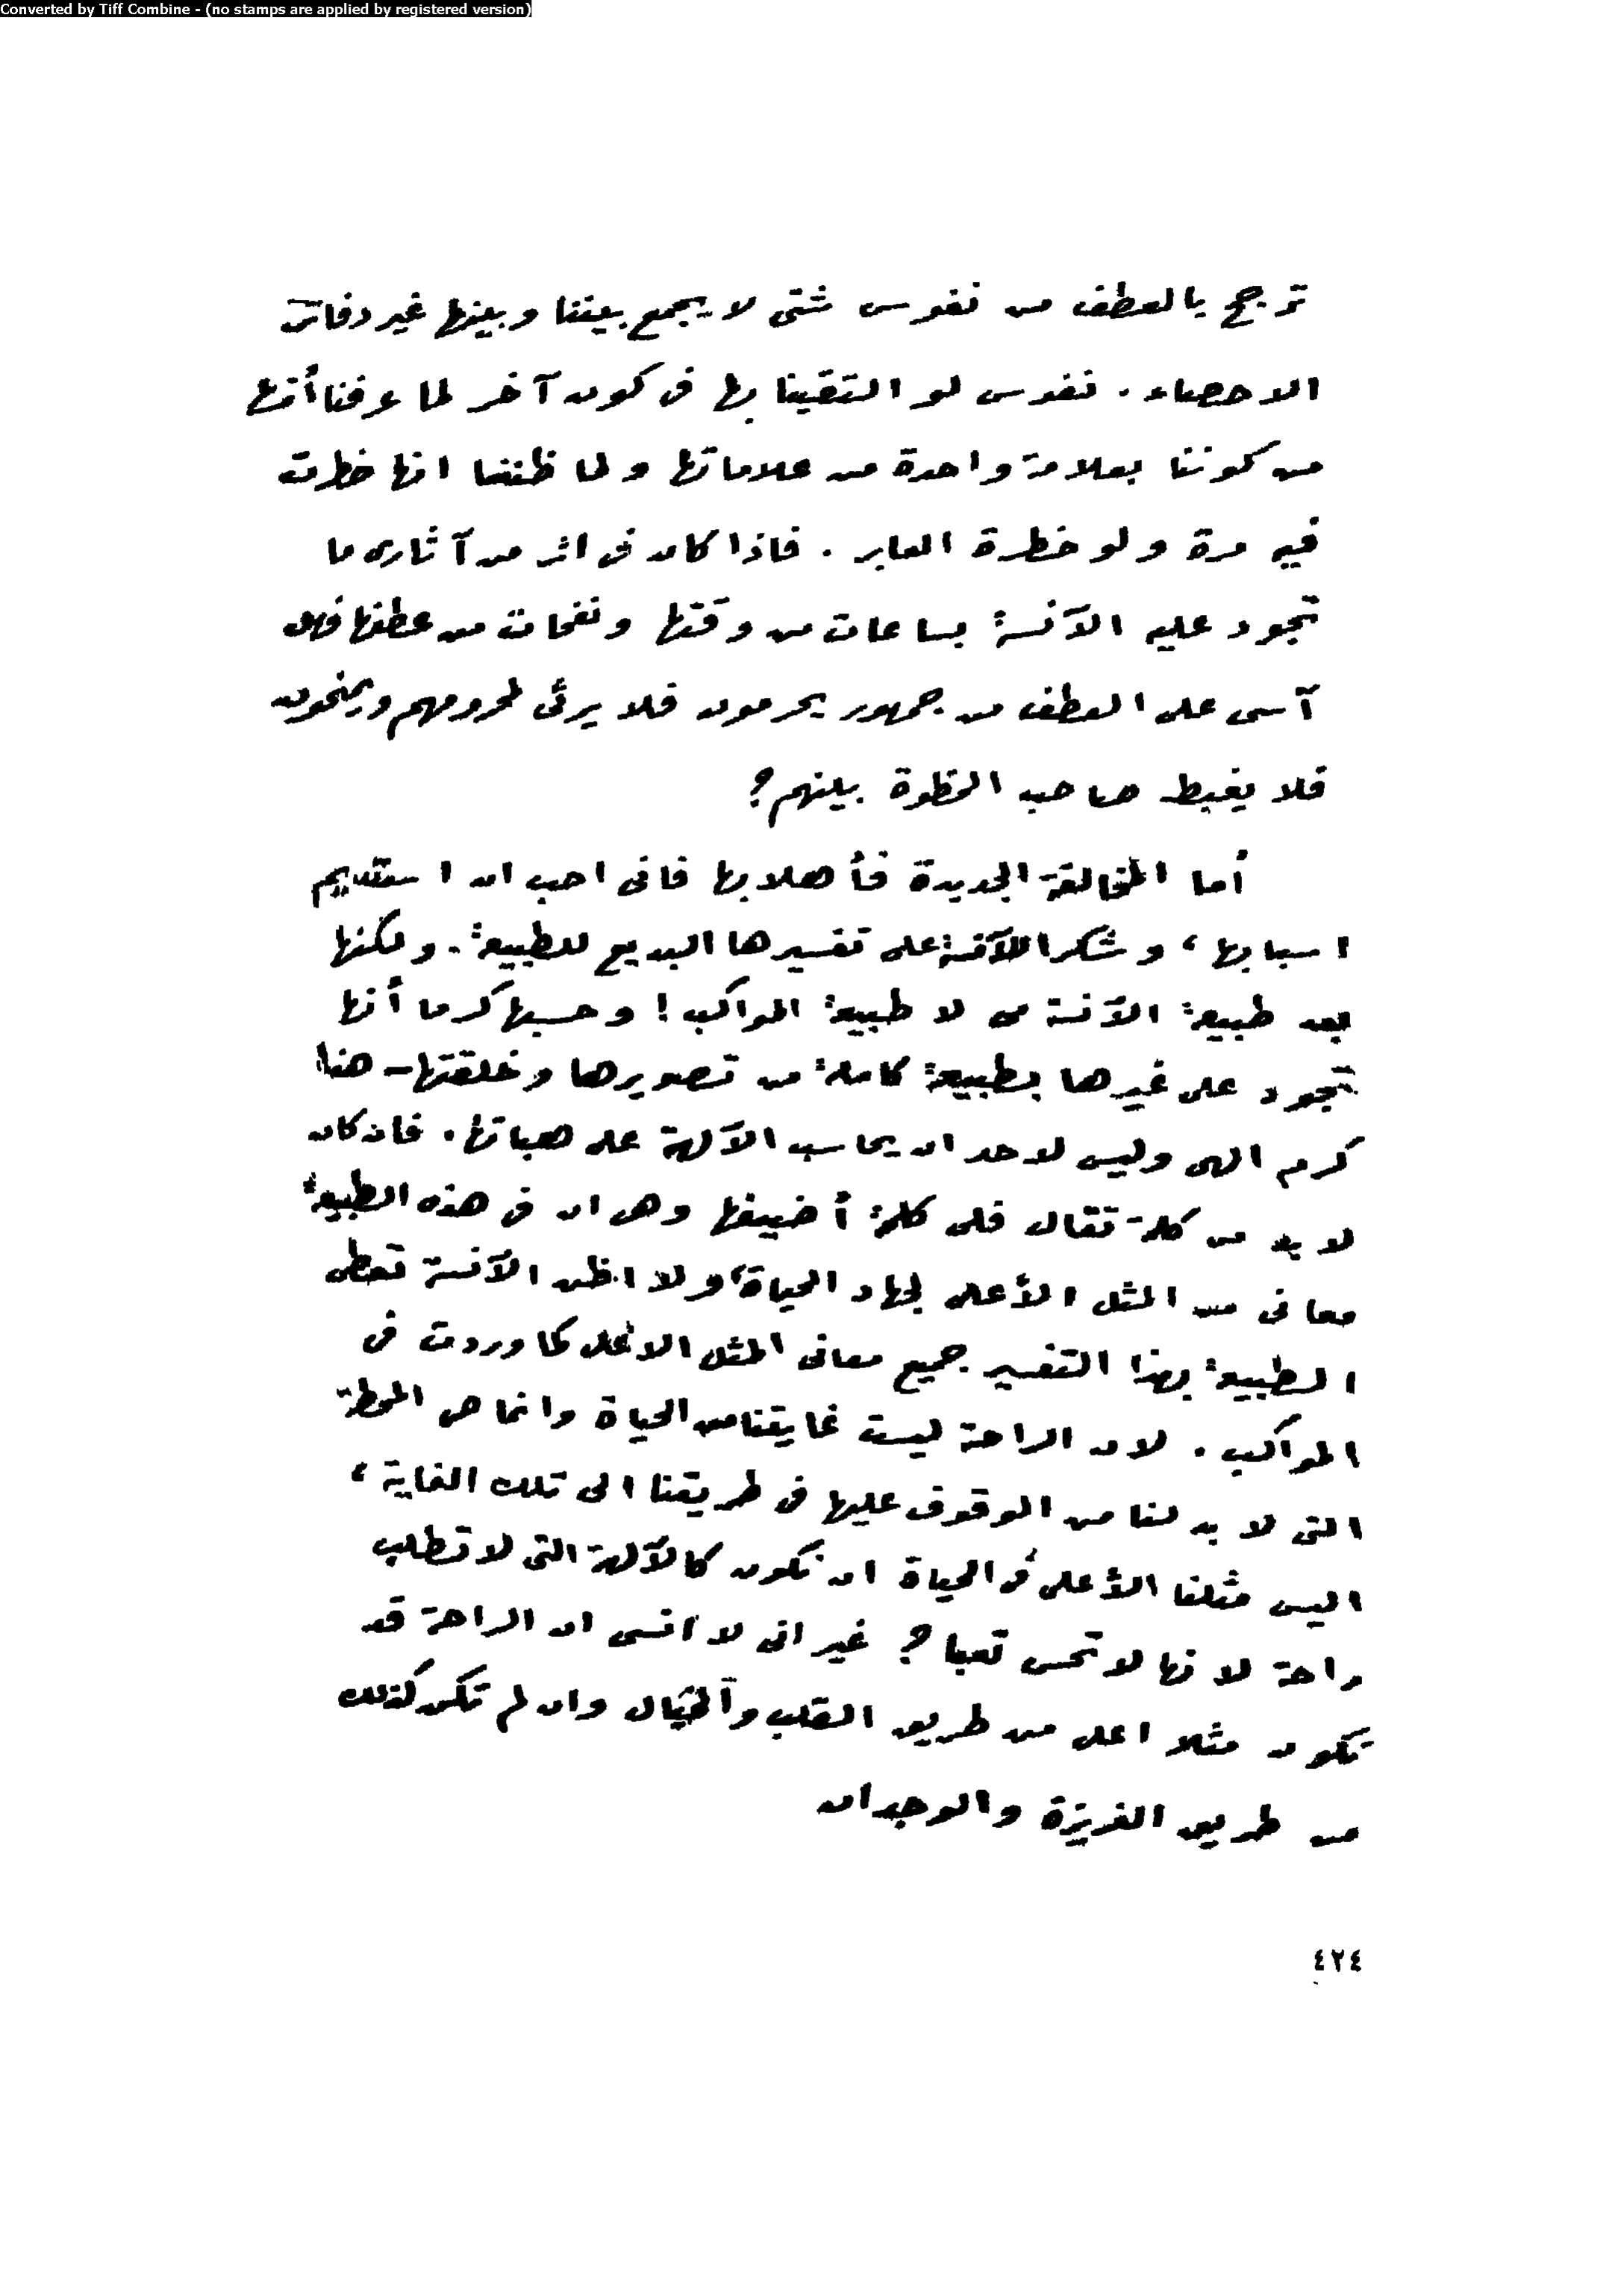 Converted by Tiff Combine - (no stamps are applied by registered version)
ترجح بالعطف من نفوس شتى لا يجمع بيننا وبينها غير دفاتر
الاحصاء . نفوس لو التقينا بها فى كون آخر لما عرفنا أنها
من كوننا بعلامة واحدة من علاماتها ولما ظننا انها خطرت
فيه مرة ولو خطرة العابر . فاذا كان فى اثر من آثارى ما
تجود عليه الآنسة بساعات من وقتها ونفحات من عطفها فهل
آسى على العطف من جمهور يحرمون فلا يرثى لمحرومهم ويمنحون
فلا يغبط صاحب الحظوة بينهم؟
أما المخالفة الجديدة فأهلا بها فانى احب ان استقديم
اسبابها ، وشكرا للآنسة على تفسيرها البديع للطبيعة . ولكنها
بعد طبيعة الآنسة مى لا طبيعة المواكب ! وحسبها كرما أنها
تجود على غيرها بطبيعة كاملة من تصويرها وخلقتها - هذا
كرم الهى وليس لاحد ان يحاسب الآلهة على هباتها . فان كان
لا بد من كلمة تقال فلى كلمة أضيفها وهى ان فى هذه الطبيعة
معانى من المثل الأعلى لجهاد الحياة ، ولا اظن الآنسة تعطى
الطبيعة بهذا التفسير جميع معانى المثل الاعلى كما وردت فى
المواكب . لان الراحة ليست غايتنا من الحياة وانما هى المحطة
التى لا بد لنا من الوقوف عليها فى طريقنا الى تلك الغاية ،
اليس مثلنا الأعلى فى الحياة ان نكون كالآلهة التى لا تطلب
راحة لانها لا تحس تعبا ؟ غير انى لا انسى ان الراحة قد
تكون مثلا اعلى من طريق القلب والخيال وان لم تكن كذلك
من طريق الغريزة والوجدان
٤٢٤